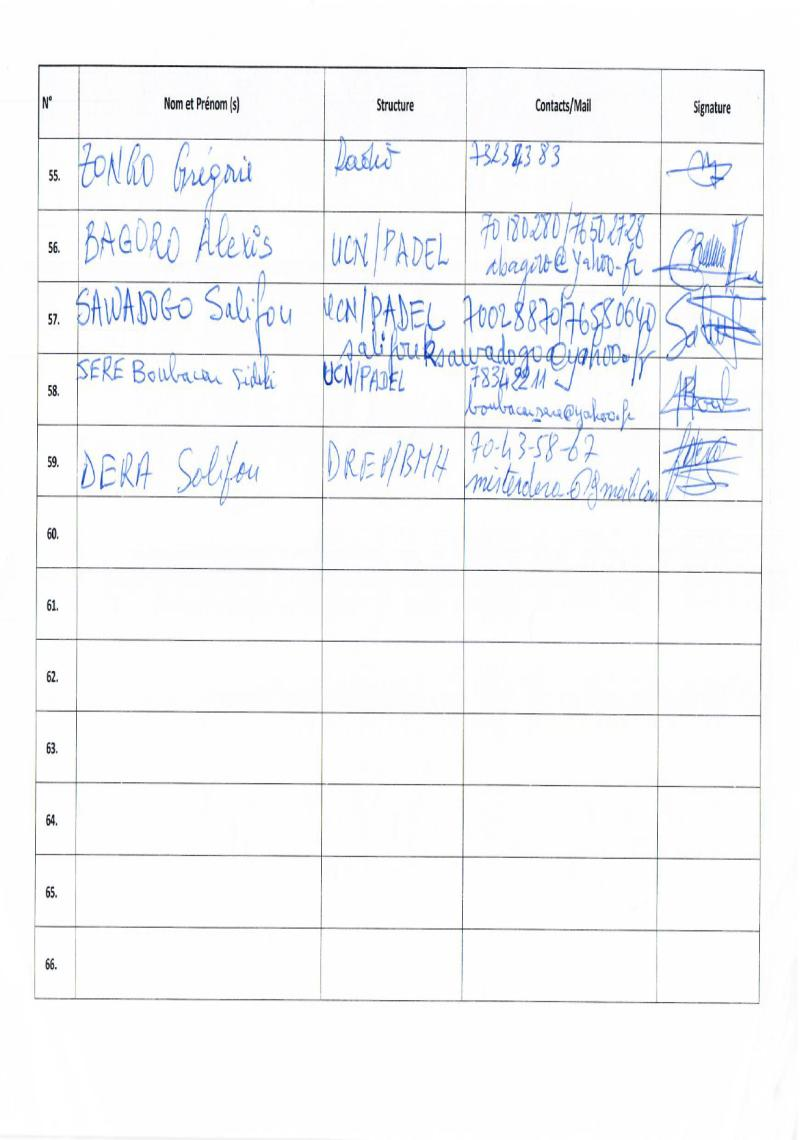 N° Nom et Prénom (s) Structure Contacts/Mail Signature
55. ZONGO Grégoire Radio 73234383
56. BAGORO Alexis UCN/PADEL 70180280/76502728
abagoro@yahoo.fr
57. SAWADOGO Salifou UCN/PADEL 70028870/76580640
salifouksawadogo@yahoo.fr
58. SERE Boubacar Sidiki UCN/PADEL 78342211
boubacarsere@yahoo.fr
59. DERA Salifou DREP/BMH 70-43-58-67
misterdera6@gmail.com
60.
61.
62.
63.
64.
65.
66.